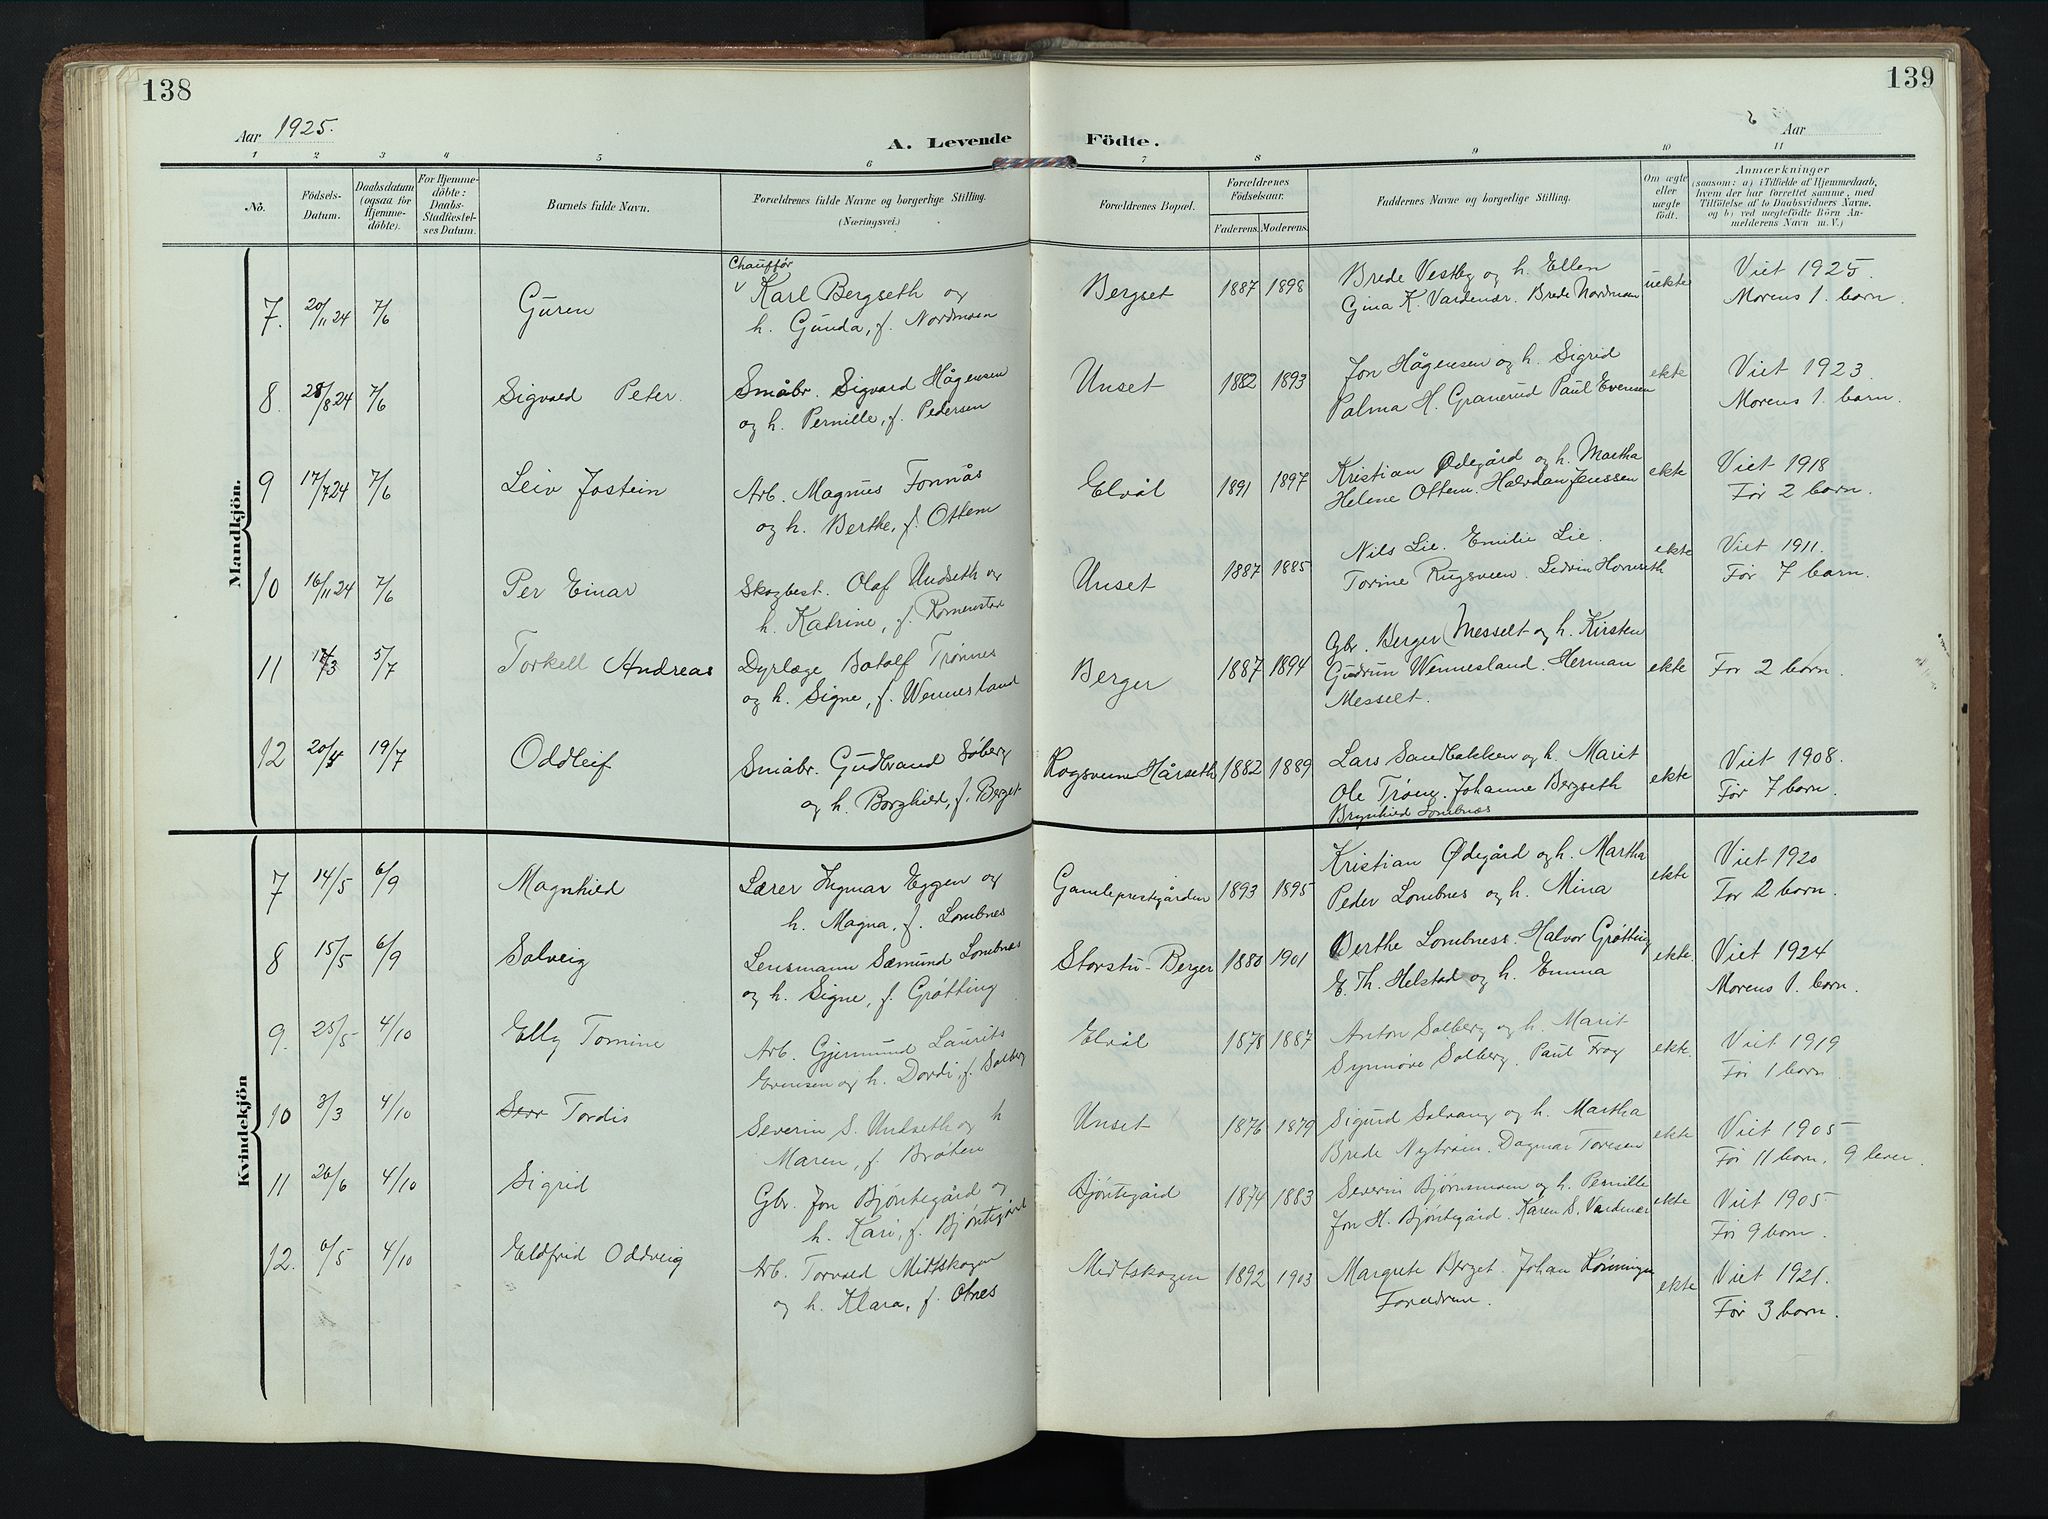 138
139
Aar 1925.
A. Levende
Födte.
Aar
1 2 3 4 5 6 7 8 9 10 11
No.
Födsels-
Datum.
Daabsdatum
(ogsaa for
Hjemme-
döbte).
For Hjemme-
döbte:
Daabs-
Stadfæstel-
ses Datum.
Barnets fulde Navn.
Forældrenes fulde Navne og borgerlige Stilling.
(Næringsvei.)
Forældrenes Bopæl.
Forældrenes
Födselsaar.
Faderens. Moderens.
Faddernes Navne og borgerlige Stilling.
Om ægte
eller
uægte
födt.
Anmærkninger
(saasom: a) i Tilfælde af Hjemmedaab,
hvem der har forrettet samme, med
Tilföielse af to Daabsvidners Navne.
og b) ved uægtefödte Börn An-
melderens Navn m. V.)
Mandkjön.
7. 20/11 24 7/6 Guren
Chauffør
Karl Bergseth og
h. Gunda, f. Nordmoen
Bergset 1887 1898
Brede Vestby og h. Ellen
Gina K. Vardenær. Brede Nordmoen
uekte
Viet 1925.
Morens 1. barn.
8. 28/8 24 7/6 Sigvald Peter.
Småbr. Sigvard Hågensen
og h. Pernille, f. Pedersen
Unset 1882 1893
Jon Hågensen og h. Sigrid
Palma H. Granerud Paul Evensen
ekte
Viet 1923.
Morens 1. barn.
9 17/7 24 7/6 Leiv Jostein
Arb. Magnus Fonnås
og h. Berthe, f. Ottem
Elvål 1891 1897
Kristian Ødegård og h. Martha
Helene Ottem. Halvdan Jenssen
ekte
Viet 1918
Før 2 barn.
10 16/11 24 7/6 Per Einar
Skogbest. Olaf Undseth og
h. Katrine, f.
Unset 1887 1885
Nils Lie. Emilie Lie.
Torine Rugsveen.
ekte
Viet 1911.
Før 7 barn.
11 5/7 Torkell Andreas
Dyrlæge Botolf Trønnes
og h. Signe, f. Wennesland
Berger 1887 1894
Gbr. Berger Messelt og h. Kirsten
Gudrun Wennesland. Herman
Messelt.
ekte
Før 2 barn.
12 20/4 19/7 Oddleif
Småbr. Gudbrand Søberg
og h. Borghild, f. Berget
Rogsveen Hårseth 1882 1889
Lars Sandbakken og h. Marit
Ole Trøen. Johanne Bergseth
Brynhild Lombnæs
ekte
Viet 1908.
Før 7 barn.
Kvindekjön
7 14/5 6/9 Magnhild
Lærer Ingmar Eggen og
h. Magna, f. Lombnes
Gamleprestgården 1893 1895
Kristian Ødegård og h. Martha
Peder Lombnes og h. Mina
ekte
Viet 1920
Før 2 barn.
8 15/5 6/9 Solveig
Lensmann Sæmund Lombnæs
og h. Signe, f. Grøtting
Storstu-Berger 1880 1901
Berthe Lombness. Halvor Grøtting
E. Th. Helstad og h. Emma
ekte.
Viet 1924
Morens 1. barn.
9. 25/5 4/10 Elly Tomine
Arb. Gjermund Laurits
Evensen og h. Dordi, f. Solberg
Elvål 1878 1887
Anton Solberg og h. Marit
Synnøve Solberg. Paul Frog
ekte.
Viet 1919
Før 1 barn.
10 3/3 4/10 Tordis
Severin S. Undseth og h
Maren, f. Bråten
Unset 1876 1879
Sigurd Solvang og h. Martha
Brede Nytrøen. Dagmar Toresen
ekte
Viet 1905
Før 11 barn. 9 lever.
11 26/6 4/10 Sigrid
Gbr. Jon Bjøntegård og
h. Kari, f. Bjøntegård
Bjøntegård 1874 1883
Severin Bjørnsmoen og h. Pernille
Jon H. Bjøntegård. Karen S. Vardenær
ekte
Viet 1905
Før 9 barn.
12. 6/5 4/10 Eldfrid Oddveig
Arb. Torvald Midtskogen
og h. Klara, f. Otnes
Midtskogen 1892 1903
Margrete Berget. Johan Rønningen
Foreldrene.
ekte
Viet 1921.
Før 3 barn.